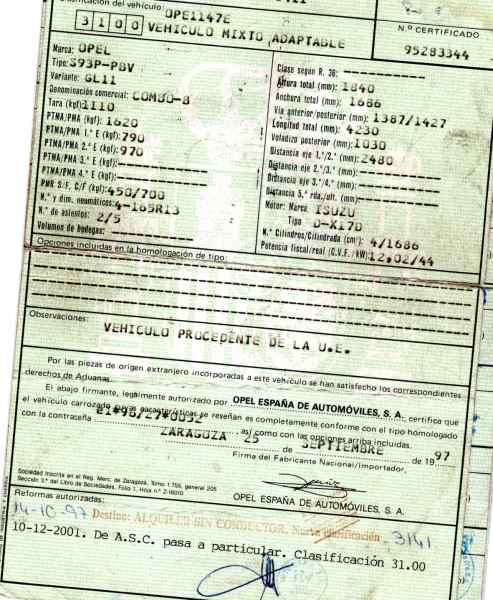 Clasificación del vehículo:
OPE1147E
3100 VEHICULO MIXTO ADAPTABLE
N.º CERTIFICADO
95283344
Marca: OPEL
Tipo: S93P-PBV
Variante: GL11
Denominación comercial: COMBO-B
Tara (kgf): 1110
PTMA/PMA (kgf): 1620
PTMA/PMA 1.º E (kgf): 790
PTMA/PMA 2.º E (kgf): 970
PTMA/PMA 3.º E (kgf):
PTMA/PMA 4.º E (kgf):
PMR S/F, C/F (kgf): 450/700
N.º y dim. neumáticos: 4-165R13
N.º de asientos: 2/5
Volumen de bodegas:
Clase según R. 36:
Altura total (mm): 1840
Anchura total (mm): 1686
Vía anterior/posterior (mm): 1387/1427
Longitud total (mm): 4230
Voladizo posterior (mm): 1030
Distancia eje 1.º/2.º (mm): 2480
Distancia eje 2.º/3.º (mm):
Distancia eje 3.º/4.º (mm):
Distancia 5.ª rda./ult. (mm):
Motor: Marca ISUZU
Tipo D-X17D
N.º Cilindros/Cilindrada (cm³): 4/1686
Potencia fiscal/real (C.V.F./kW): 12,02/44
Opciones incluidas en la homologación de tipo:
Observaciones:
VEHICULO PROCEDENTE DE LA U.E.
Por las piezas de origen extranjero incorporadas a este vehículo se han satisfecho los correspondientes
derechos de Aduanas.
El abajo firmante, legalmente autorizado por OPEL ESPAÑA DE AUTOMÓVILES, S. A., certifica que
el vehículo carrozado cuyas características se reseñan es completamente conforme con el tipo homologado
con la contraseña así como con las opciones arriba incluidas.
ZARAGOZA 25 de SEPTIEMBRE de 1997
Firma del Fabricante Nacional/Importador,
Sociedad inscrita en el Reg. Merc. de Zaragoza, Tomo 1.755, general 205
Sección 3.ª del Libro de Sociedades, Folio 1, Hoja n.º
OPEL ESPAÑA DE AUTOMÓVILES, S. A.
Reformas autorizadas:
14-10-97 Destino: ALQUILER SIN CONDUCTOR. Nueva clasificación 3141
10-12-2001. De A.S.C. pasa a particular. Clasificación 31.00